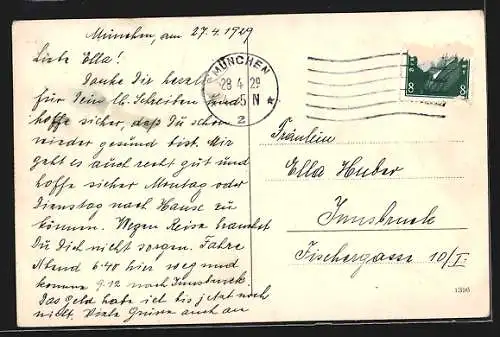 München, am 27.4.1929
Liebe Ella!
Danke Dir herzl.
für Dein lb. Schreiben und
hoffe sicher, daß Du schon
wieder gesund bist. Mir
geht es auch recht gut und
hoffe sicher Montag oder
Dienstag nach Hause zu
können. Wegen Reise brauchst
Du Dich nicht sorgen. Fahre
Abend 6.40 hier weg und
komme 9.12 nach Innsbruck.
Das Geld habe ich bis jetzt noch
nicht. Viele Grüsse auch an
MÜNCHEN
28 4 29
5 N
2
8 8
Fräulein
Ella Huber
Innsbruck
Fischergasse 10/I.
1396